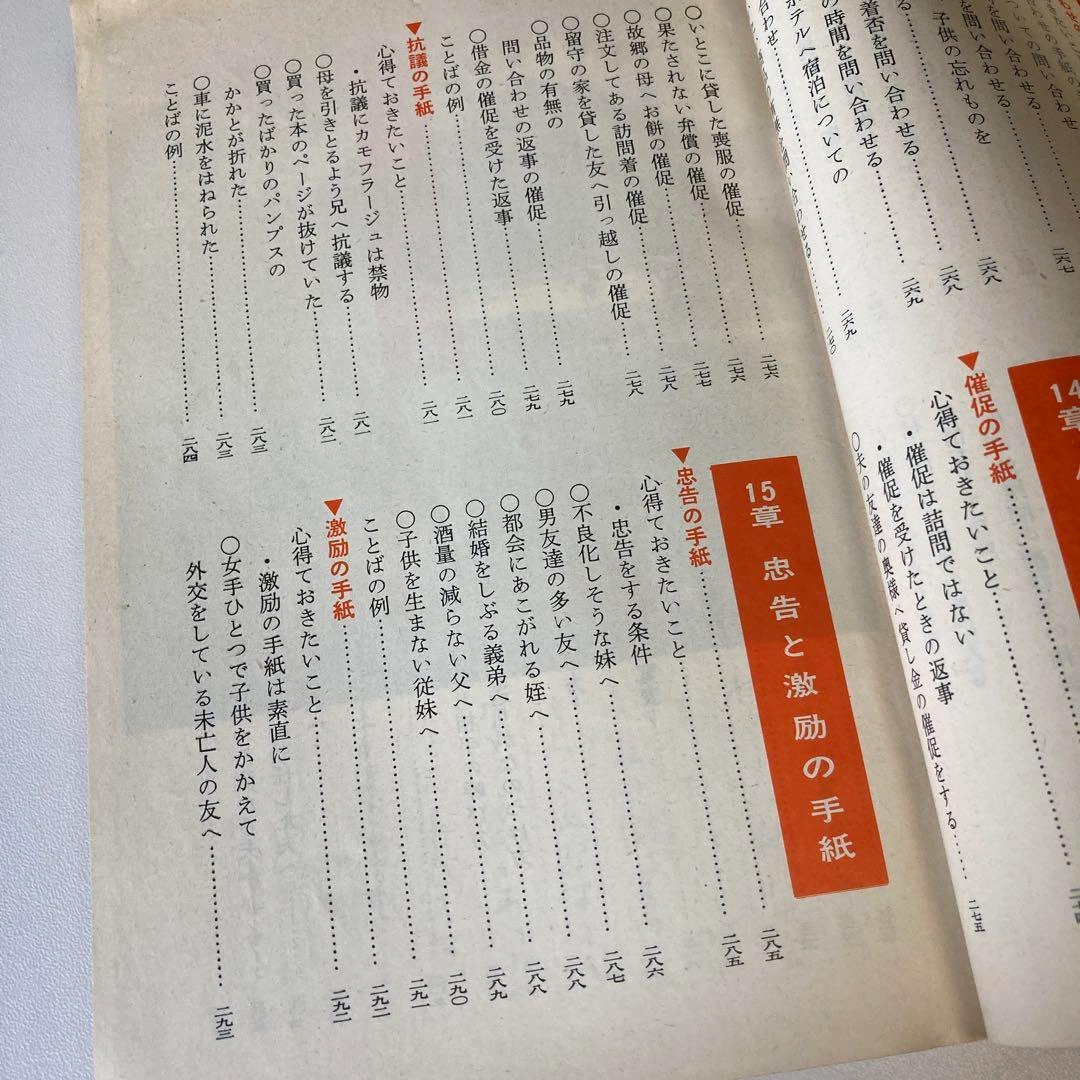 子供の忘れものを
問い合わせる……二六八
着否を問い合わせる……二六八
の時間を問い合わせる……二六九
ホテルへ宿泊についての
14章
▼催促の手紙
心得ておきたいこと
・催促は詰問ではない
・催促を受けたときの返事
○夫の友達の奥様へ貸し金の催促をする……二七五
○いとこに貸した喪服の催促……二七六
○果たされない弁償の催促……二七六
○故郷の母へお餅の催促……二七七
○注文してある訪問着の催促……二七八
○留守の家を貸した友へ引っ越しの催促……二七八
○品物の有無の
問い合わせの返事の催促……二七九
○借金の催促を受けた返事……二七九
ことばの例……二八〇
▼抗議の手紙……二八一
心得ておきたいこと……二八一
・抗議にカモフラージュは禁物
○母を引きとるよう兄へ抗議する……二八一
○買った本のページが抜けていた……二八二
○買ったばかりのパンプスの
かかとが折れた……二八三
○車に泥水をはねられた……二八三
ことばの例……二八四
15章 忠告と激励の手紙
▼忠告の手紙……二八五
心得ておきたいこと……二八五
・忠告をする条件
○不良化しそうな妹へ……二八六
○男友達の多い友へ……二八七
○都会にあこがれる姪へ……二八八
○結婚をしぶる義弟へ……二八八
○酒量の減らない父へ……二八九
○子供を生まない従妹へ……二九〇
ことばの例……二九一
▼激励の手紙……二九二
心得ておきたいこと……二九二
・激励の手紙は素直に
○女手ひとつで子供をかかえて
外交をしている未亡人の友へ……二九三